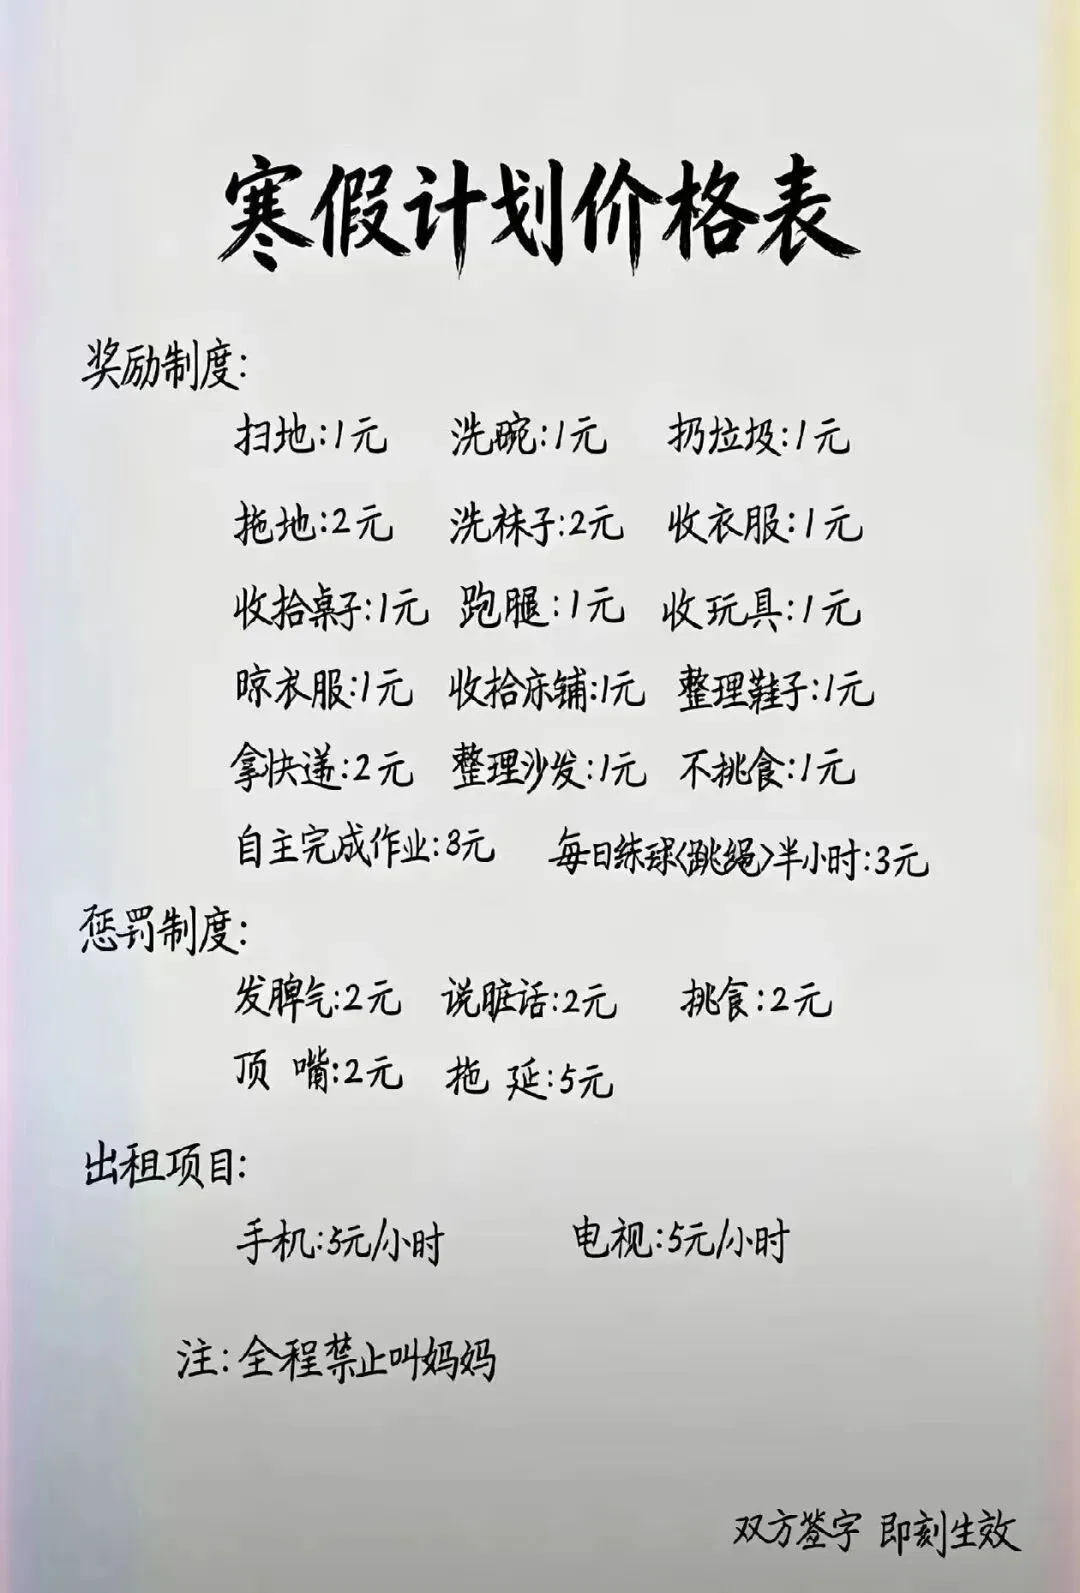 寒假计划价格表
奖励制度:
扫地:1元 洗碗:1元 扔垃圾:1元
拖地:2元 洗袜子:2元 收衣服:1元
收拾桌子:1元 跑腿:1元 收玩具:1元
晾衣服:1元 收拾床铺:1元 整理鞋子:1元
拿快递:2元 整理沙发:1元 不挑食:1元
自主完成作业:3元 每日练球(跳绳)半小时:3元
惩罚制度:
发脾气:2元 说脏话:2元 挑食:2元
顶 嘴:2元 拖 延:5元
出租项目:
手机:5元/小时 电视:5元/小时
注:全程禁止叫妈妈
双方签字 即刻生效